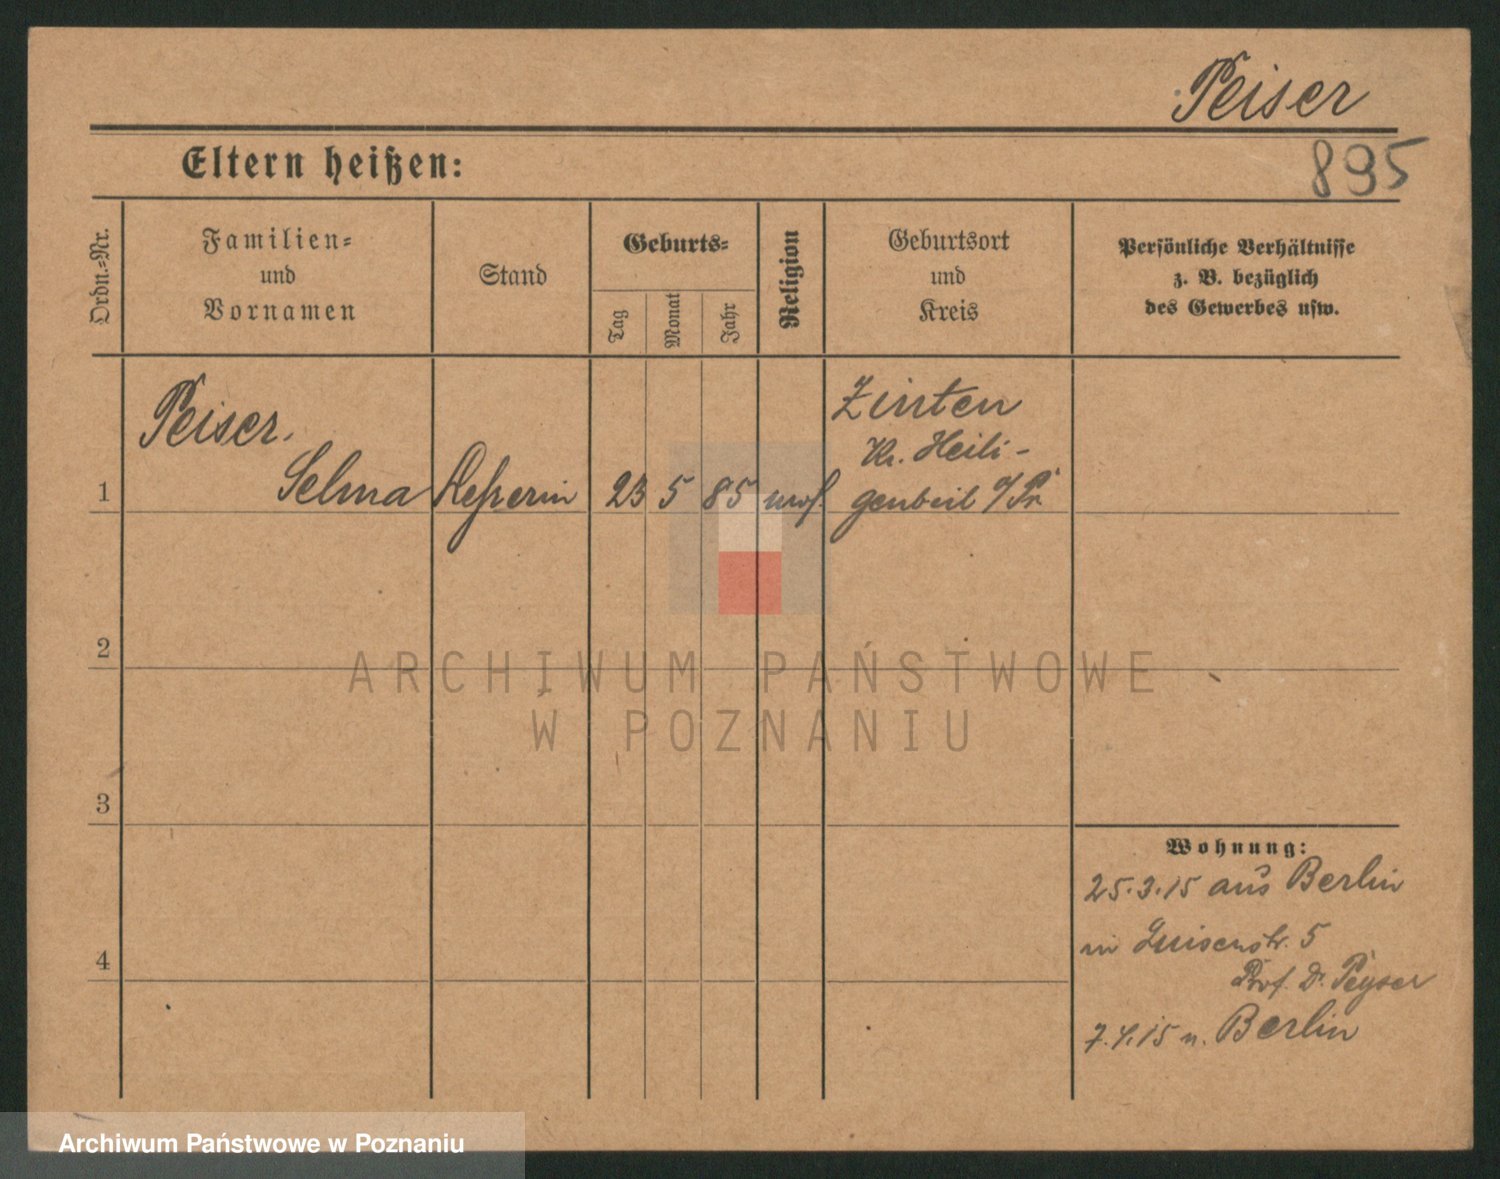 Peiser
895
Eltern heißen:
Ordn.-Nr.
Familien-
und
Vornamen
Stand
Geburts-
Tag
Monat
Jahr
Religion
Geburtsort
und
Kreis
Persönliche Verhältnisse
z. B. bezüglich
des Gewerbes usw.
Peiser.
Selma
23
5
85
mos.
Zinten
Kr. Heili-
genbeil O/Pr.
1
2
3
4
Wohnung:
25.3.15 aus Berlin
in Luisenstr. 5
Prof. Dr. Peyser
7.4.15 n. Berlin
ARCHIWUM PAŃSTWOWE
W POZNANIU
Archiwum Państwowe w Poznaniu